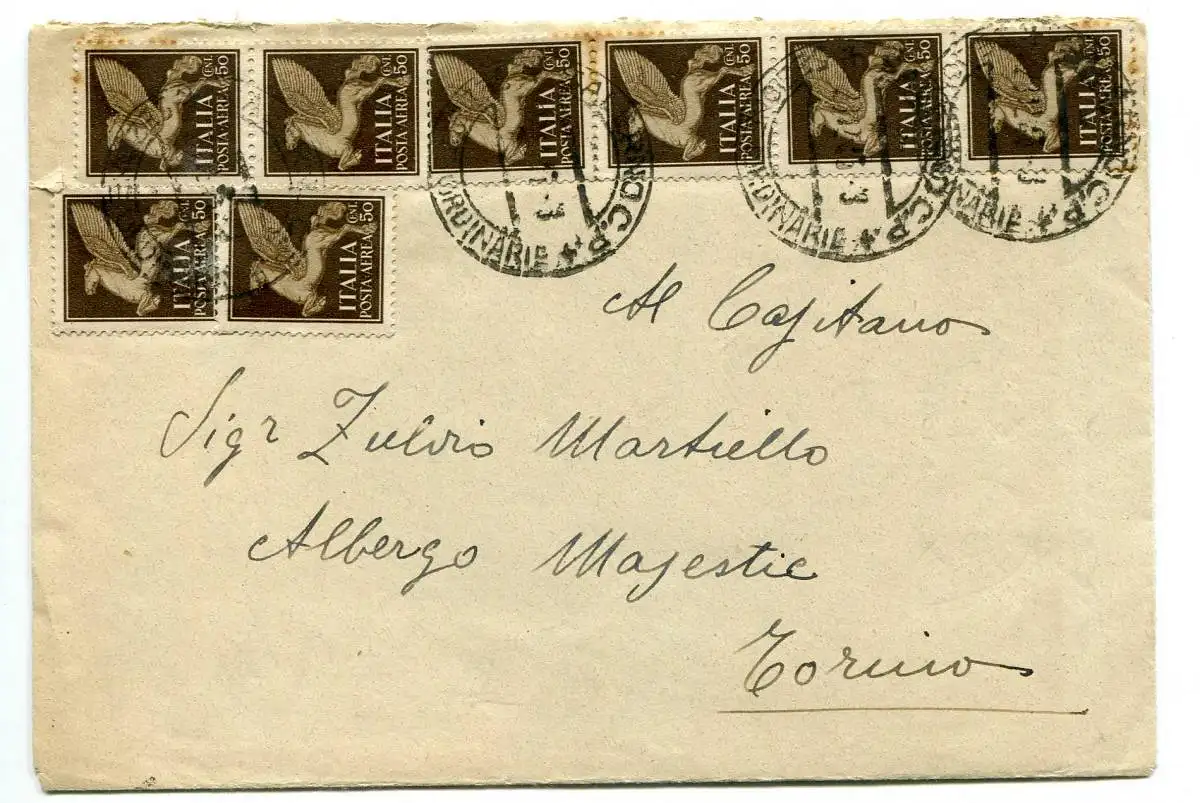 ITALIA POSTA AEREA CENT. 50
ITALIA POSTA AEREA CENT. 50
ITALIA POSTA AEREA CENT. 50
ITALIA POSTA AEREA CENT. 50
ITALIA POSTA AEREA CENT. 50
ITALIA POSTA AEREA CENT. 50
ITALIA POSTA AEREA CENT. 50
ITALIA POSTA AEREA CENT. 50
ORDINARIE
RDINARIE
NARIE
Al Capitano
Sigr Fulvio Martiello
Albergo Majestic
Torino